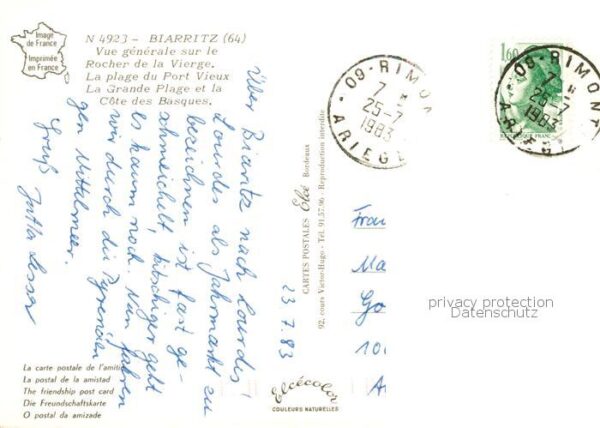 Image
de France
Imprimée
en France
N 4923 - BIARRITZ (64)
Vue générale sur le
Rocher de la Vierge.
La plage du Port Vieux
La Grande Plage et la
Côte des Basques.
Über Biaritz nach Lourdes,
Lourdes als Jahrmarkt zu
bezeichnen ist fast ge-
schmeichelt, kitschiger geht
es kaum noch. Nun fahren
wir durch die Pyrenäen
gen Mittelmeer.
Gruß Jutta
23.7.83
CARTES POSTALES Elcé Bordeaux
92, cours Victor-Hugo - Tél. 91.57.96 - Reproduction interdite
Elcécolor
COULEURS NATURELLES
La carte postale de l'amitié
La postal de la amistad
The friendship post card
Die Freundschaftskarte
O postal da amizade
09-RIMONT
7 H
25-7
1983
ARIEGE
1,60
REPUBLIQUE FRANC
09-RIMONT
7 H
25-7
1983
ARIEGE
Frau
Ma
Go
100
privacy protection
Datenschutz